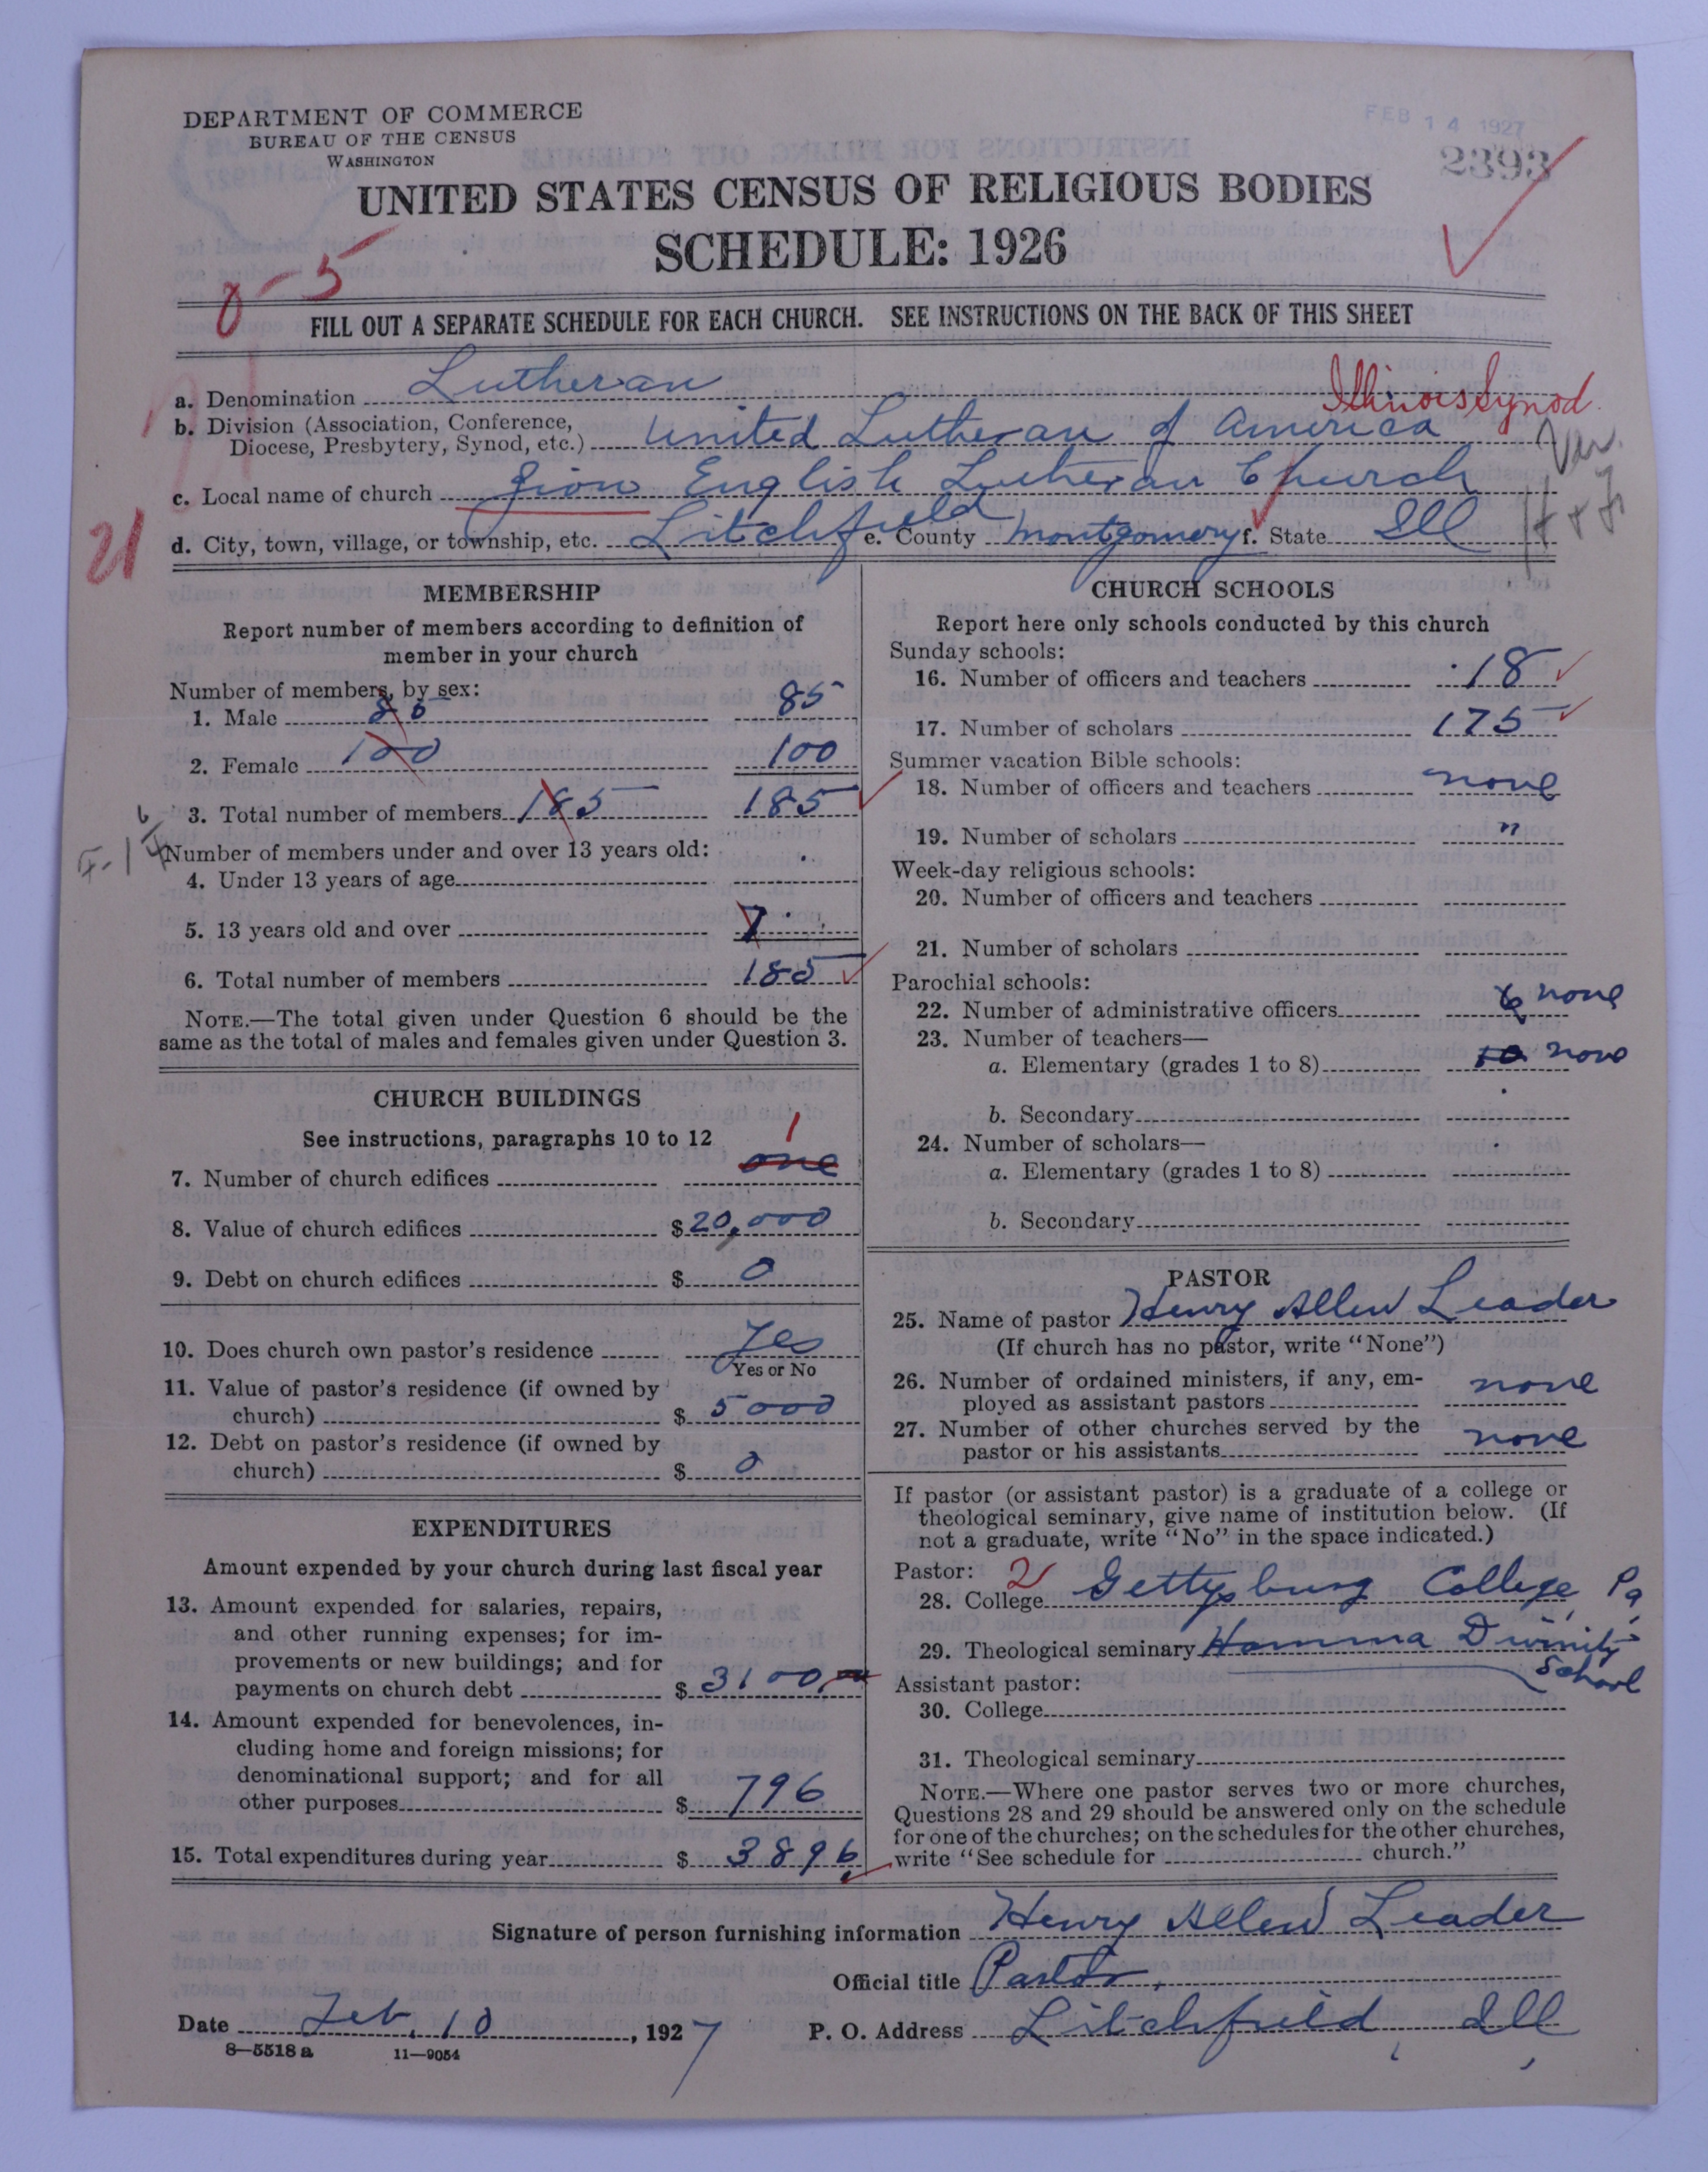 DEPARTMENT OF COMMERCE
BUREAU OF THE CENSUS
WASHINGTON
FEB 14 1927
2393
UNITED STATES CENSUS OF RELIGIOUS BODIES
SCHEDULE: 1926
0-5
FILL OUT A SEPARATE SCHEDULE FOR EACH CHURCH. SEE INSTRUCTIONS ON THE BACK OF THIS SHEET
a. Denomination Lutheran
Illinois Synod
b. Division (Association, Conference,
Diocese, Presbytery, Synod, etc.) United Lutheran of America
c. Local name of church Zion English Lutheran Church
21
d. City, town, village, or township, etc. Litchfield e. County Montgomery f. State Ill
MEMBERSHIP
Report number of members according to definition of
member in your church
Number of members, by sex:
1. Male 85 85
2. Female 100 100
3. Total number of members 185 185
Number of members under and over 13 years old:
4. Under 13 years of age
5. 13 years old and over
6. Total number of members 185
NOTE.—The total given under Question 6 should be the
same as the total of males and females given under Question 3.
CHURCH BUILDINGS
See instructions, paragraphs 10 to 12 1
7. Number of church edifices one
8. Value of church edifices $20,000
9. Debt on church edifices $ 0
10. Does church own pastor's residence Yes
Yes or No
11. Value of pastor's residence (if owned by
church) $ 5000
12. Debt on pastor's residence (if owned by
church) $ 0
EXPENDITURES
Amount expended by your church during last fiscal year
13. Amount expended for salaries, repairs,
and other running expenses; for im-
provements or new buildings; and for
payments on church debt $ 3100.
14. Amount expended for benevolences, in-
cluding home and foreign missions; for
denominational support; and for all
other purposes $ 796
15. Total expenditures during year $ 3896
CHURCH SCHOOLS
Report here only schools conducted by this church
Sunday schools:
16. Number of officers and teachers 18
17. Number of scholars 175
Summer vacation Bible schools:
18. Number of officers and teachers none
19. Number of scholars "
Week-day religious schools:
20. Number of officers and teachers
21. Number of scholars
Parochial schools:
22. Number of administrative officers 6 none
23. Number of teachers—
a. Elementary (grades 1 to 8) 10 none
b. Secondary
24. Number of scholars—
a. Elementary (grades 1 to 8)
b. Secondary
PASTOR
25. Name of pastor Henry Allen Leader
(If church has no pastor, write "None")
26. Number of ordained ministers, if any, em-
ployed as assistant pastors none
27. Number of other churches served by the
pastor or his assistants none
If pastor (or assistant pastor) is a graduate of a college or
theological seminary, give name of institution below. (If
not a graduate, write "No" in the space indicated.)
Pastor: 2
28. College Gettysburg College, Pa.
29. Theological seminary Hamma Divinity
School
Assistant pastor:
30. College
31. Theological seminary
NOTE.—Where one pastor serves two or more churches,
Questions 28 and 29 should be answered only on the schedule
for one of the churches; on the schedules for the other churches,
write "See schedule for church."
Signature of person furnishing information Henry Allen Leader
Official title Pastor.
Date Feb. 10, 1927 P. O. Address Litchfield, Ill
8—5518 a 11—9054